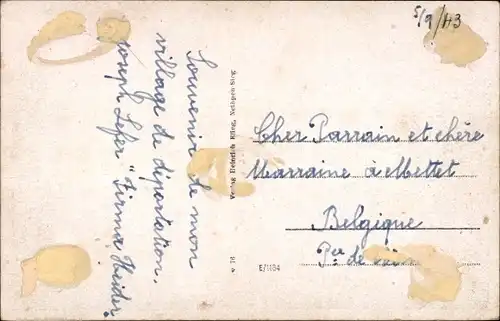 5/9/43
Souvenir de mon
village de déportation.
Joseph Lefer "Firma Heider"
Verlag Heinrich Netzphen Sieg.
* 78
Cher Parrain et chère
Marraine à Mettet
Belgique
Pce de
E/1104